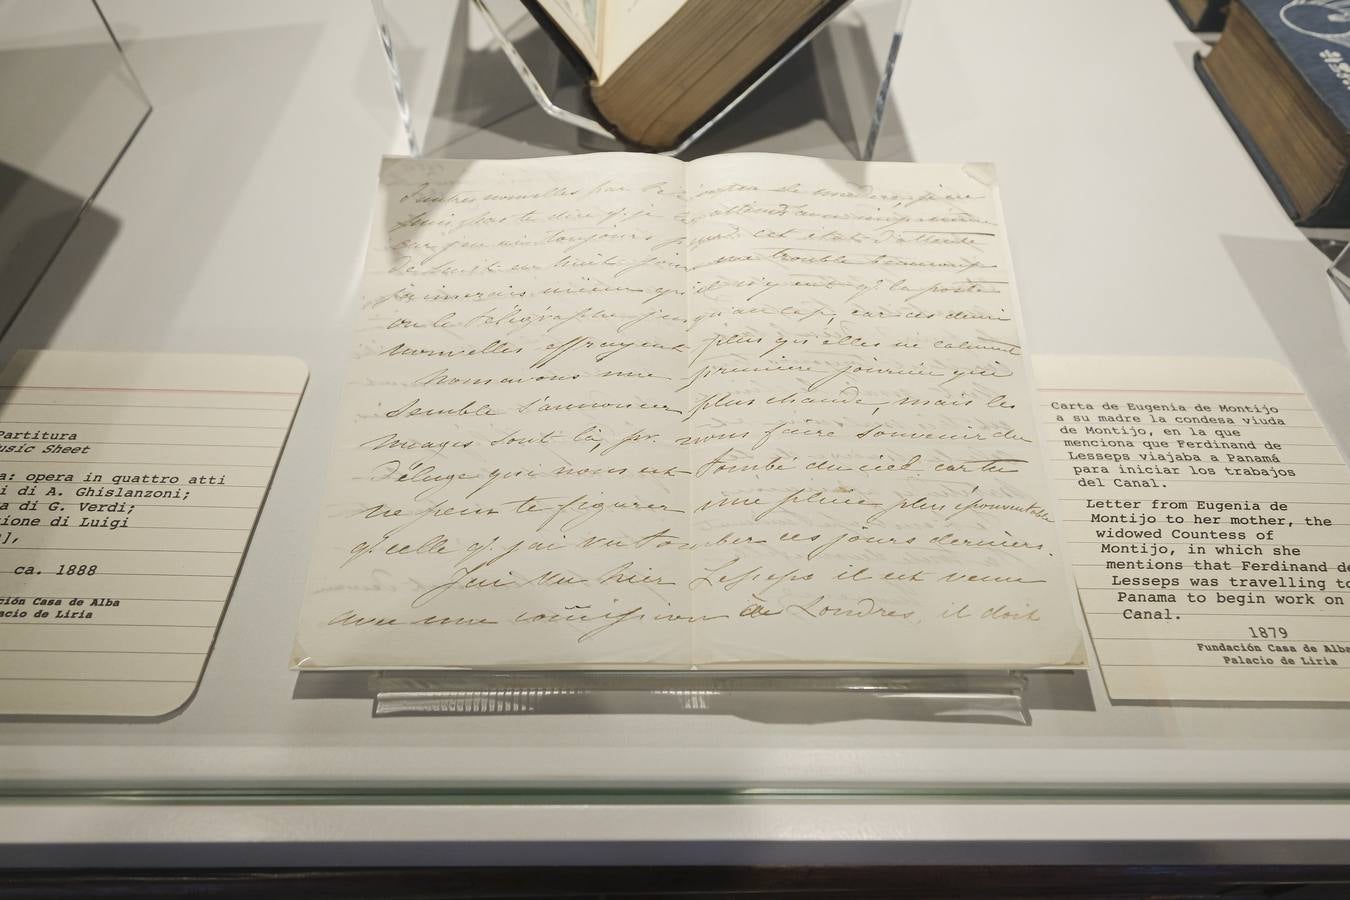 Partitura
usic Sheet
a: opera in quattro atti
i di A. Ghislanzoni;
a di G. Verdi;
ione di Luigi
],
ca. 1888
ción Casa de Alba
acio de Liria
d'autres nouvelles par
puis pas te dire q. je
toujours cet état d'attente
de huit en huit jours me trouble beaucoup
j'aimerais mieux qu'il n'y eut q. la poste
ou le télégraphe jusqu'au Cap, car ces demi
nouvelles effrayent plus qu'elles ne calment
Nous avons une première journée qui
semble s'annoncer plus chaude, mais les
nuages sont là, pr. nous faire souvenir du
déluge qui nous est tombé du ciel. car tu
ne peux te figurer une pluie plus épouvantable
q. celle q. j'ai vu tomber ces jours derniers.
J'ai vu hier Lesseps il est venu
avec une commission de Londres, il doit
Carta de Eugenia de Montijo
a su madre la condesa viuda
de Montijo, en la que
menciona que Ferdinand de
Lesseps viajaba a Panamá
para iniciar los trabajos
del Canal.
Letter from Eugenia de
Montijo to her mother, the
widowed Countess of
Montijo, in which she
mentions that Ferdinand de
Lesseps was travelling to
Panama to begin work on
Canal.
1879
Fundación Casa de Alba
Palacio de Liria